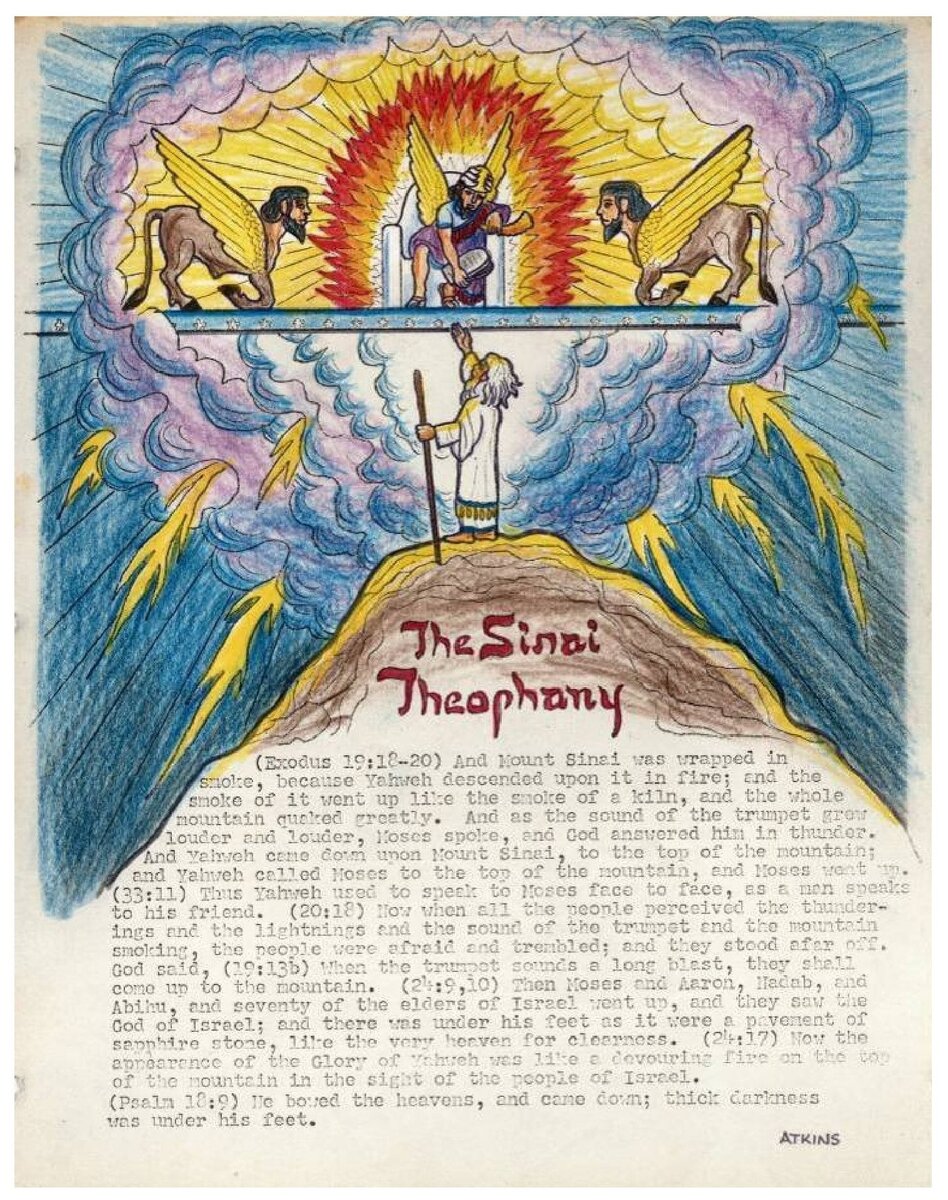 The Sinai
Theophany
(Exodus 19:18-20) And Mount Sinai was wrapped in
smoke, because Yahweh descended upon it in fire; and the
smoke of it went up like the smoke of a kiln, and the whole
mountain quaked greatly. And as the sound of the trumpet grew
louder and louder, Moses spoke, and God answered him in thunder.
And Yahweh came down upon Mount Sinai, to the top of the mountain;
and Yahweh called Moses to the top of the mountain, and Moses went up.
(33:11) Thus Yahweh used to speak to Moses face to face, as a man speaks
to his friend. (20:18) Now when all the people perceived the thunder-
ings and the lightnings and the sound of the trumpet and the mountain
smoking, the people were afraid and trembled; and they stood afar off.
God said, (19:13b) When the trumpet sounds a long blast, they shall
come up to the mountain. (24:9,10) Then Moses and Aaron, Nadab, and
Abihu, and seventy of the elders of Israel went up, and they saw the
God of Israel; and there was under his feet as it were a pavement of
sapphire stone, like the very heaven for clearness. (24:17) Now the
appearance of the Glory of Yahweh was like a devouring fire on the top
of the mountain in the sight of the people of Israel.
(Psalm 18:9) He bowed the heavens, and came down; thick darkness
was under his feet.
ATKINS